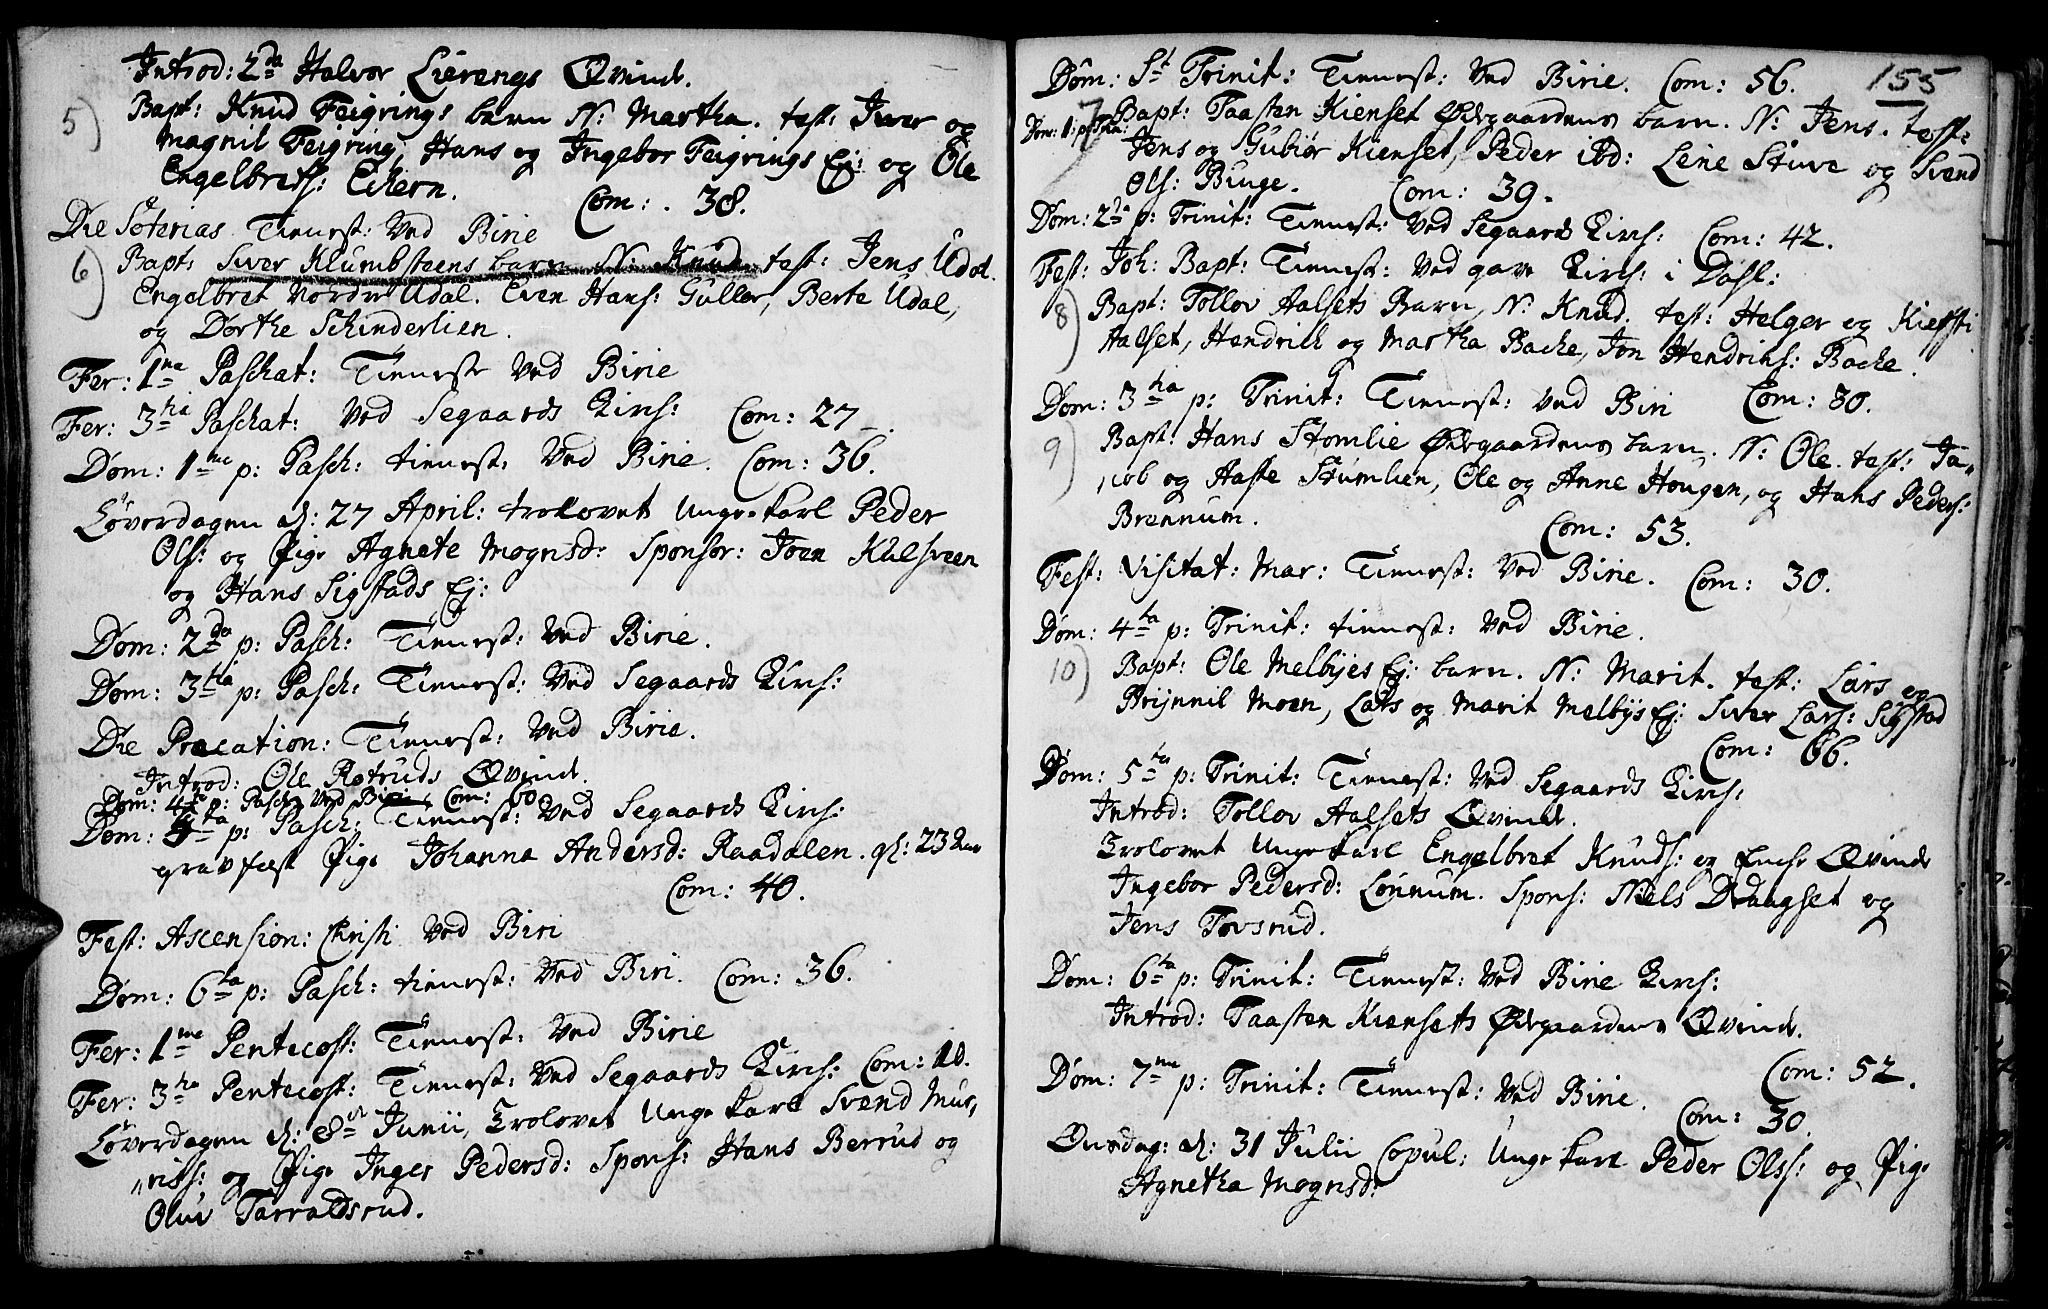 Introd: 2da Halvor Lierengs Qvinde.
5) Bapt: Knud Feigrings barn N: Martha. test: Iver og
Magnil Feigring, Hans og Ingebor Feigrings Ej: og Ole
Engelbrets: Eckern. Com: . 38.
Die Soterias Tienest: Ved Birie
6) Bapt: Siver Klumbsteens barn N: Knud test: Jens Udal.
Engelbret Nordre Udal. Even Hans: Guller, Berte Udal,
og Dorthe Schinderlien.
Fer: 1ma Paschat: Tieneste Ved Birie
Fer: 3tia Paschat: Ved Segaards Kirch: Com: 27
Dom: 1me p: Pasch: tienest: Ved Birie. Com: 36.
Løverdagen d: 27 April: trolovet Unge karl Peder
Ols: og Pige Agnete Mognsd: Sponsor: Joen Kulsveen
og Hans Sigstads Ej:
Dom: 2da p: Pasch: Tienest: Ved Birie.
Dom: 3tia p: Pasch: Tienest: Ved Segaards Kirch:
Die Precation: Tienest: Ved Birie.
Introd: Ole Rotruds Qvinde.
Dom: 4ta p: Pasch: Ved Birie. Com: 60
Dom: 5ta p: Pasch: Tienest: Ved Segaards Kirch:
gravfest Pige Johanna Andersd: Raadalen. gl: 23 Aar
Com: 40.
Fest: Ascension: Christi Ved Biri
Dom: 6ta p: Pasch: tienest: Ved Biri. Com: 36.
Fer: 1me Pentecost: Tienest: Ved Birie
Fer: 3tia Pentecost: Tienest: Ved Segaards Kirch: Com: 10.
Løverdagen d: 8de Junii, Trolovet Unge karl Svend Mus,
Pige Inger Pedersd: Spons: Hans Berrud og
Oluf Tarraldsrud.
155
Dom: St Trinit: Tienest: Ved Birie. Com: 56.
Dom: 1: p: Trin: 7 Bapt: Taasten Kienset Ødegaardens barn. N: Jens. test:
Jens og Gubiør Kienset, Peder ibd: Lene Stuve og Svend
Ols: Buuge. Com: 39.
Dom: 2da p: Trinit: Tienest: Ved Segaards Kirch: Com: 42.
Fest: Joh: Bapt: Tienest: Ved gave Kirch: i Dahl:
8) Bapt: Tollov Aalsets Barn, N: Knud. test: Helger og Kiersti
Aalset, Hendrich og Martha Backe, Jon Hendrichs: Backe.
Dom: 3tia p: Trinit: Tienest: Ved Biri Com: 80.
9) Bapt: Hans Stomlie Ødegaardens barn. N: Ole. test: Ja,,
,,cob og Aaste Stumlien, Ole og Anne Hougen, og Hans Peders:
Brennum. Com: 53.
Fest: Visitat: Mar: Tienest: Ved Birie. Com: 30.
Dom: 4ta p: Trinit: tienest: Ved Birie.
10) Bapt: Ole Melbyes Ej: barn. N: Marit. test: Lars og
Brynnil Moen, Lars og Marit Melbys Ej: Siver Lars: Sigstad
Com: 66.
Dom: 5ta p: Trinit: Tienest: Ved Segaards Kirch:
Introd: Tollov Aalsets Qvinde.
Trolovet Unge karl Engelbret Knuds: og Enche Qvinde
Ingebor Pedersd: Lønnum. Spons: Niels Draagset og
Jens Tovsrud.
Dom: 6ta p: Trinit: Tienest: Ved Birie Kirch:
Introd: Taasten Kiensets Ødegaardens Qvinde.
Com: 52.
Dom: 7me p: Trinit: Tienest: Ved Birie.
Com: 30.
Onsdag: d: 31 Julii Copul: Unge karl Peder Olss: og Pige
Agnetha Mognsd: